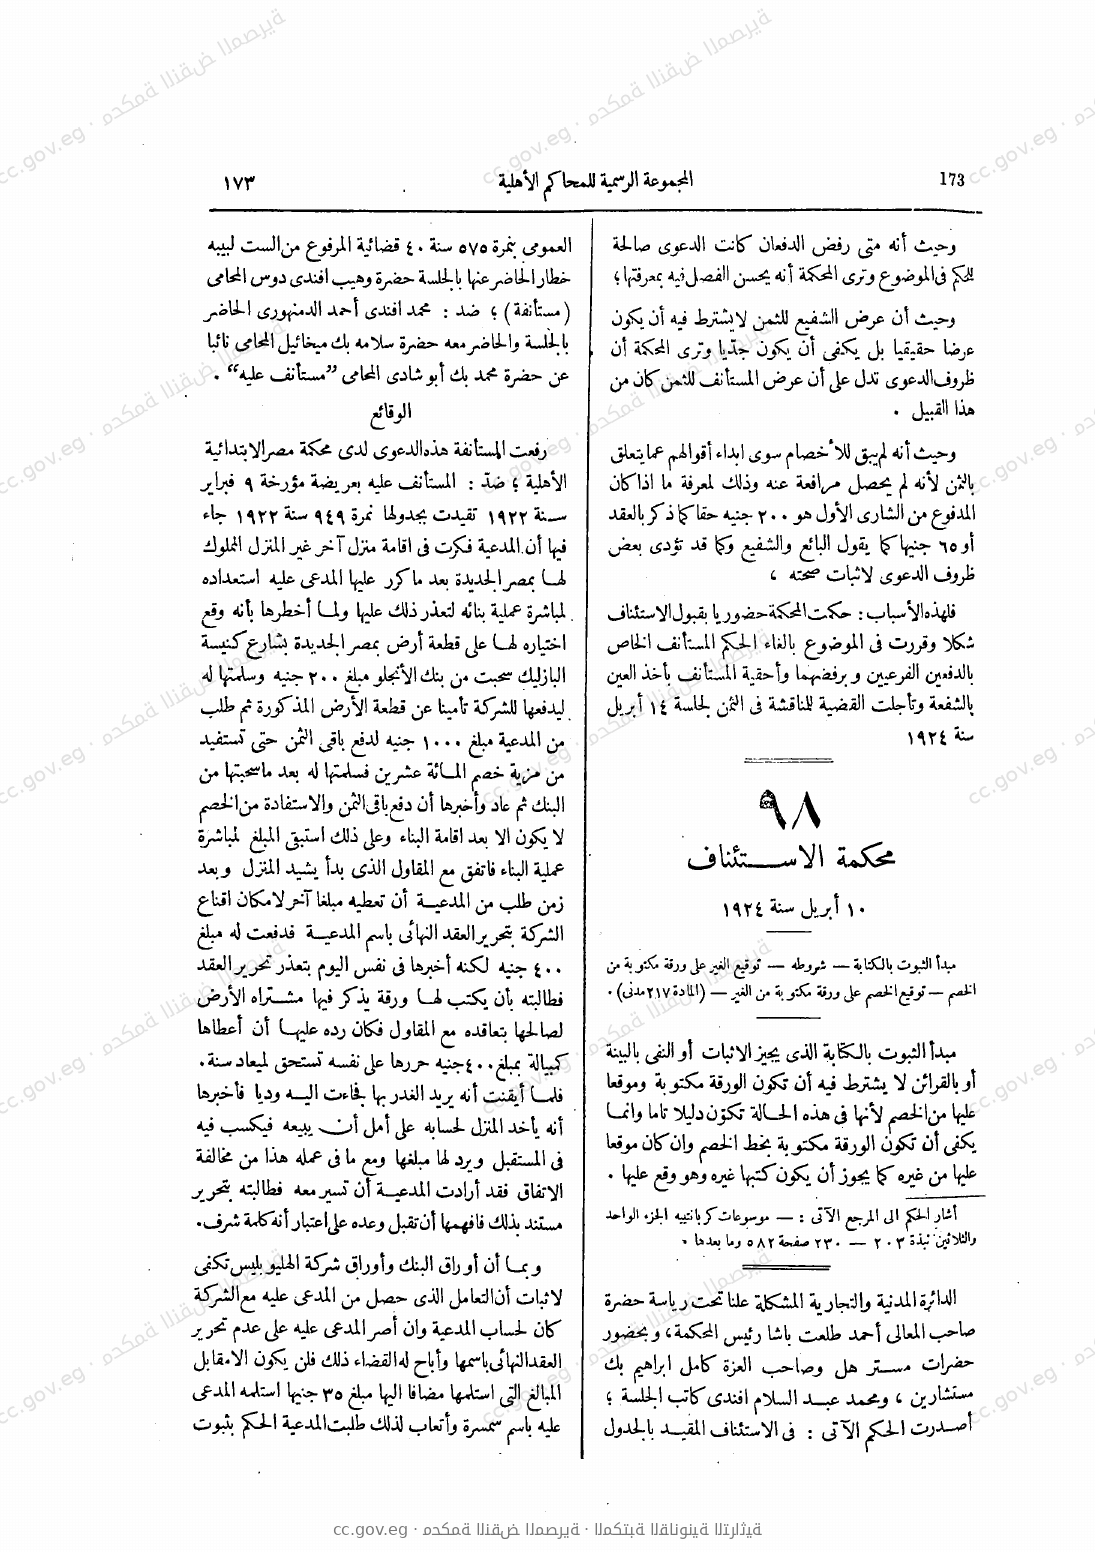 173
المجموعة الرسمية للمحاكم الأهلية
١٧٣
وحيث أنه متى رفض الدفعان كانت الدعوى صالحة
للحكم فى الموضوع وترى المحكمة أنه يحسن الفصل فيه بمعرفتها ؛
وحيث أن عرض الشفيع للثمن لا يشترط فيه أن يكون
عرضا حقيقيا بل يكفى أن يكون جدّيا وترى المحكمة أن
ظروف الدعوى تدل على أن عرض المستأنف للثمن كان من
هذا القبيل .
وحيث أنه لم يبق للأخصام سوى ابداء أقوالهم عما يتعلق
بالثمن لأنه لم يحصل مرافعة عنه وذلك لمعرفة ما اذا كان
المدفوع من الشارى الأول هو ٢٠٠ جنيه حقا كما ذكر بالعقد
أو ٦٥ جنيها كما يقول البائع والشفيع وكما قد تؤدى بعض
ظروف الدعوى لاثبات صحته ،
فلهذه الأسباب : حكمت المحكمة حضوريا بقبول الاستئناف
شكلا وقررت فى الموضوع بالغاء الحكم المستأنف الخاص
بالدفعين الفرعيين و برفضهما وأحقية المستأنف بأخذ العين
بالشفعة وتأجلت القضية للمناقشة فى الثمن لجلسة ١٤ أبريل
سنة ١٩٢٤
٩٨
محكمة الاستئناف
١٠ أبريل سنة ١٩٢٤
مبدأ الثبوت بالكتابة — شروطه — توقيع الغير على ورقة مكتوبة من
الخصم — توقيع الخصم على ورقة مكتوبة من الغير — (المادة ٢١٧ مدنى) .
مبدأ الثبوت بالكتابة الذى يجيز الاثبات أو النفى بالبينة
أو بالقرائن لا يشترط فيه أن تكون الورقة مكتوبة وموقعا
عليها من الخصم لأنها فى هذه الحالة تكوّن دليلا تاما وانما
يكفى أن تكون الورقة مكتوبة بخط الخصم وان كان موقعا
عليها من غيره كما يجوز أن يكون كتبها غيره وهو وقع عليها .
أشار الحكم الى المرجع الآتى : — موسوعات كربانتييه الجزء الواحد
والثلاثين نبذة ٢٠٣ — ٢٣٠ صفحة ٥٨٢ وما بعدها .
الدائرة المدنية والتجارية المشكلة علنا تحت رياسة حضرة
صاحب المعالى أحمد طلعت باشا رئيس المحكمة ، و بحضور
حضرات مستر هل وصاحب العزة كامل ابراهيم بك
مستشارين ، ومحمد عبد السلام افندى كاتب الجلسة ؛
أصدرت الحكم الآتى : فى الاستئناف المقيد بالجدول
العمومى بنمرة ٥٧٥ سنة ٤٠ قضائية المرفوع من الست لبيبه
خطار الحاضر عنها بالجلسة حضرة وهيب افندى دوس المحامى
(مستأنفة) ؛ ضد : محمد افندى أحمد الدمنهورى الحاضر
بالجلسة والحاضر معه حضرة سلامه بك ميخائيل المحامى نائبا
عن حضرة محمد بك أبو شادى المحامى "مستأنف عليه" .
الوقائع
رفعت المستأنفة هذه الدعوى لدى محكمة مصر الابتدائية
الأهلية ؛ ضدّ : المستأنف عليه بعريضة مؤرخة ٩ فبراير
سنة ١٩٢٢ تقيدت بجدولها نمرة ٩٤٩ سنة ١٩٢٢ جاء
فيها أن المدعية فكرت فى اقامة منزل آخر غير المنزل المملوك
لها بمصر الجديدة بعد ما كرر عليها المدعى عليه استعداده
لمباشرة عملية بنائه لتعذر ذلك عليها ولما أخطرها بأنه وقع
اختياره لها على قطعة أرض بمصر الجديدة بشارع كنيسة
البازليك سحبت من بنك الأنجلو مبلغ ٢٠٠ جنيه وسلمتها له
ليدفعها للشركة تأمينا عن قطعة الأرض المذكورة ثم طلب
من المدعية مبلغ ١٠٠٠ جنيه لدفع باقى الثمن حتى تستفيد
من مزية خصم المائة عشرين فسلمتها له بعد ما سحبتها من
البنك ثم عاد وأخبرها أن دفع باقى الثمن والاستفادة من الخصم
لا يكون الا بعد اقامة البناء وعلى ذلك استبقى المبلغ لمباشرة
عملية البناء فاتفق مع المقاول الذى بدأ يشيد المنزل وبعد
زمن طلب من المدعية أن تعطيه مبلغا آخر لامكان اقناع
الشركة بتحرير العقد النهائى باسم المدعية فدفعت له مبلغ
٤٠٠ جنيه لكنه أخبرها فى نفس اليوم بتعذر تحرير العقد
فطالبته بأن يكتب لها ورقة يذكر فيها مشتراه الأرض
لصالحها بتعاقده مع المقاول فكان رده عليها أن أعطاها
كمبيالة بمبلغ ٤٠٠ جنيه حررها على نفسه تستحق لميعاد سنة .
فلما أيقنت أنه يريد الغدر بها فجاءت اليه وديا فأخبرها
أنه يأخد المنزل لحسابه على أمل أن يبيعه فيكسب فيه
فى المستقبل ويرد لها مبلغها ومع ما فى عمله هذا من مخالفة
الاتفاق فقد أرادت المدعية أن تسير معه فطالبته بتحرير
مستند بذلك فافهمها أن تقبل وعده على اعتبار أنه كلمة شرف .
وبما أن أوراق البنك وأوراق شركة الهليوبليس تكفى
لاثبات أن التعامل الذى حصل من المدعى عليه مع الشركة
كان لحساب المدعية وان أصر المدعى عليه على عدم تحرير
العقد النهائى باسمها وأباح له القضاء ذلك فلن يكون الا مقابل
المبالغ التى استلمها مضافا اليها مبلغ ٣٥ جنيها استلمه المدعى
عليه باسم سمسرة وأتعاب لذلك طلبت المدعية الحكم بثبوت
cc.gov.eg · محكمة النقض المصرية · المكتبة القانونية التراثية